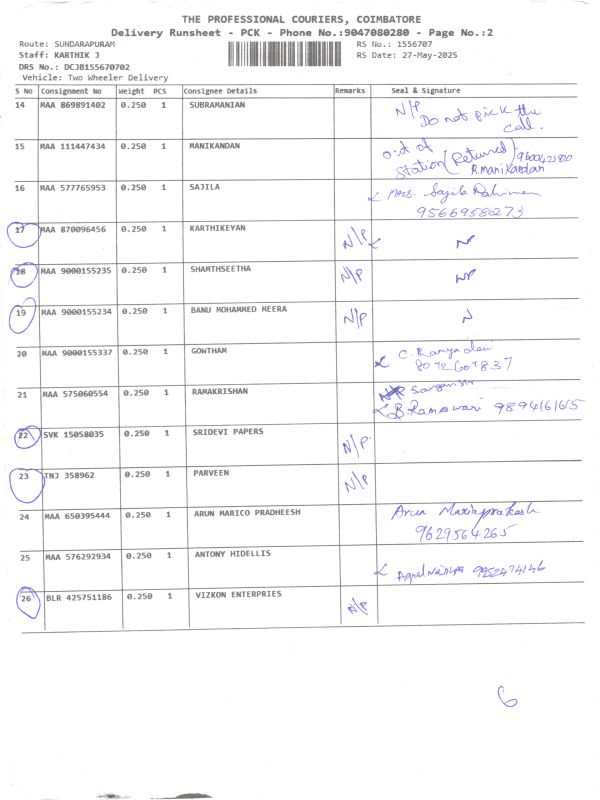 THE PROFESSIONAL COURIERS, COIMBATORE
Delivery Runsheet - PCK - Phone No.:9047080280 - Page No.:2
Route: SUNDARAPURAM RS No.: 1556707
Staff: KARTHIK J RS Date: 27-May-2025
DRS No.: DCJB155670702
Vehicle: Two Wheeler Delivery
S No Consignment No Weight PCS Consignee Details Remarks Seal & Signature
14 MAA 869891402 0.250 1 SUBRAMANIAN N/P Do not pick the call.
15 MAA 111447434 0.250 1 MANIKANDAN out of station (Returned) 9600421800 R.Manikandan
16 MAA 577765953 0.250 1 SAJILA Mrs. Sajila Rahiman 9566958273
17 MAA 870096456 0.250 1 KARTHIKEYAN N/P
18 MAA 9000155235 0.250 1 SHAMTHSEETHA N/P NP
19 MAA 9000155234 0.250 1 BANU MOHAMMED MEERA N/P N
20 MAA 9000155337 0.250 1 GOWTHAM C. Ramya devi 8072607837
21 MAA 575060554 0.250 1 RAMAKRISHAN B.Rameswari 9894161615
22 SVK 15058035 0.250 1 SRIDEVI PAPERS N/P
23 TNJ 358962 0.250 1 PARVEEN N/P
24 MAA 650395444 0.250 1 ARUN MARICO PRADHEESH Arun Mariaprakash 9629564265
25 MAA 576292934 0.250 1 ANTONY HIDELLIS 9952474146
26 BLR 425751186 0.250 1 VIZKON ENTERPRIES N/P
6